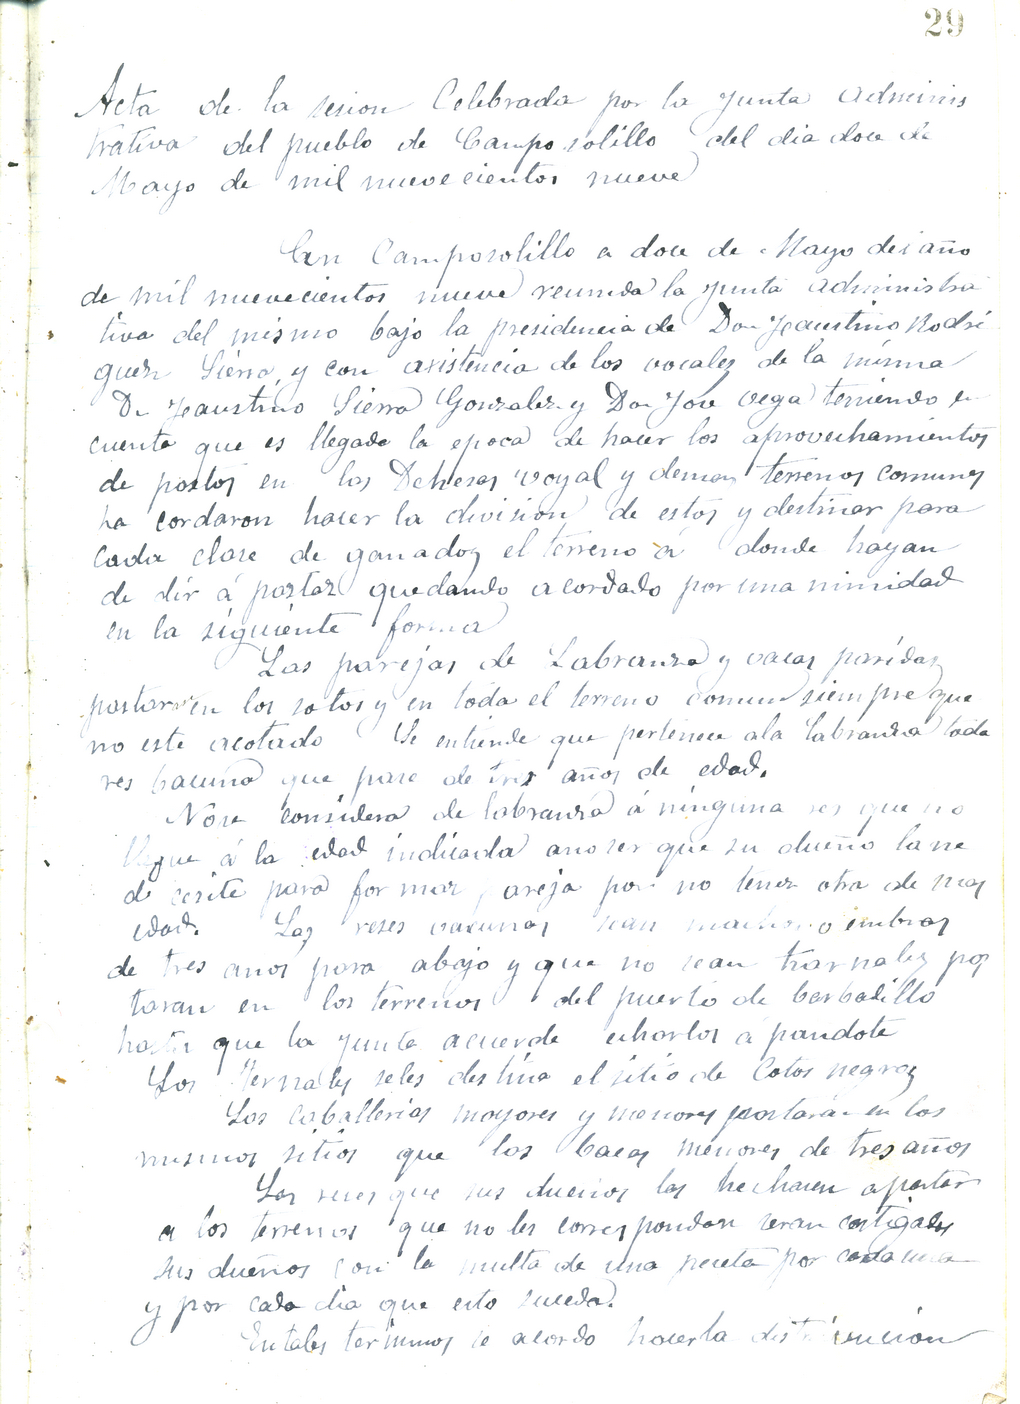 29
Acta de la sesion Celebrada por la Junta adminis
trativa del pueblo de Camposolillo del dia doce de
Mayo de mil nuevecientos nueve
En Camposolillo a doce de Mayo del año
de mil nuevecientos nueve reunida la Junta administra
tiva del mismo bajo la presidencia de Don Faustino Rodri
guez Sierra, y con asistencia de los vocales de la misma
Dn Faustino Sierra Gonzalez y Don Jose Vega teniendo en
cuenta que es llegada la epoca de hacer los aprovechamientos
de pastos en las Dehesas voyal y demas terrenos comunes
ha cordaron hacer la division de estos y destinar para
cada clase de ganados el terreno á donde hayan
de dir á pastar quedando acordado por una nimidad
en la siguiente forma
Las parejas de Labranza y vacas paridas
pastaran en los sotos y en toda el terreno comun siempre que
no este acotado Se entiende que pertenece ala labranza toda
res bacuna que pase de tres años de edad.
Nose considera de labranza á ninguna res que no
llegue á la edad indicada anoser que su dueño la ne
de cesite para formar pareja por no tener otra de mas
edad. Las reses vacunas sean machos o embras
de tres anos para abajo y que no sean tiarnales pas
taran en los terrenos del puerto de barbadillo
hasta que la Junta acuerde echarlos á pandote
Los Ternales seles destina el sitio de Cotos negros
Las caballerias mayores y menores pastarán en los
mismos sitios que las bacas menores de tres años
Las reses que sus dueños las hechasen apastar
a los terrenos que no les correspondan seran castigados
sus dueños con la multa de una peseta por cada una
y por cada dia que esto suceda.
Entales terminos se acordo hacerla distribucion